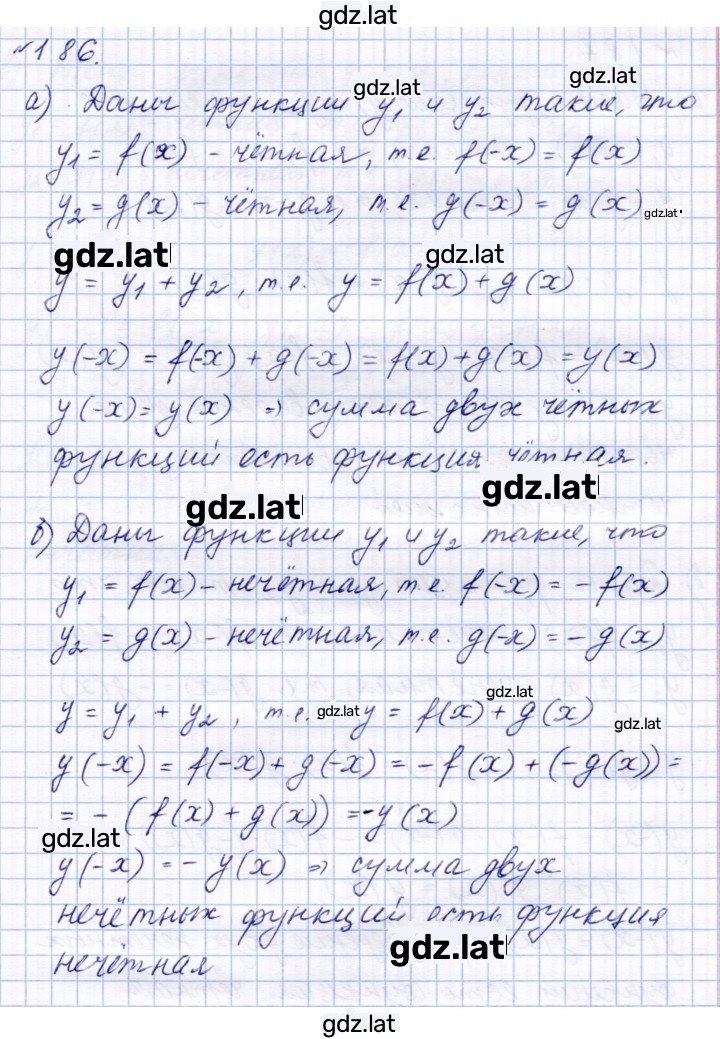 gdz.lat
№186.
gdz.lat
gdz.lat
а) Даны функции y₁ и y₂ такие, что
y₁ = f(x) - чётная, т.е. f(-x) = f(x)
y₂ = g(x) - чётная, т.е. g(-x) = g(x) gdz.lat.
gdz.lat
gdz.lat
y = y₁ + y₂, т.е. y = f(x) + g(x)
y(-x) = f(-x) + g(-x) = f(x) + g(x) = y(x)
y(-x) = y(x) ⇒ сумма двух чётных
функций есть функция чётная.
gdz.lat
gdz.lat
в) Даны функции y₁ и y₂ такие, что
y₁ = f(x) - нечётная, т.е. f(-x) = - f(x)
y₂ = g(x) - нечётная, т.е. g(-x) = - g(x)
gdz.lat
y = y₁ + y₂, т.е. gdz.lat y = f(x) + g(x)
gdz.lat
y(-x) = f(-x) + g(-x) = - f(x) + (-g(x)) =
= - (f(x) + g(x)) = -y(x)
gdz.lat
y(-x) = - y(x) ⇒ сумма двух
нечётных функций есть функция
gdz.lat
нечётная
gdz.lat